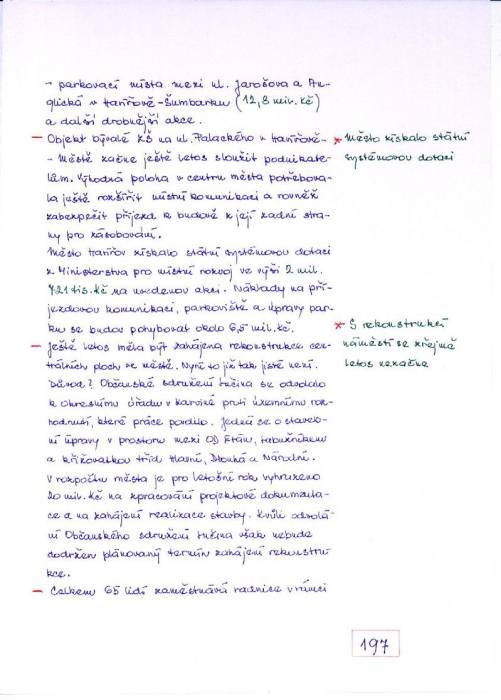 - parkovací místa mezi ul. Jarošova a An-
glická v Havířově-Šumbarku (12,8 mil. Kč)
a další drobnější akce.
- Objekt bývalé ZŠ na ul. Palackého v Havířově-
- Městě začne ještě letos sloužit podnikate-
lům. Výhodná poloha v centru města potřebova-
la ještě rozšířit místní komunikaci a rovněž
zabezpečit příjezd k budově z její zadní stra-
ny pro zásobování.
Město Havířov získalo státní systémovou dotaci
z Ministerstva pro místní rozvoj ve výši 2 mil.
721 tis. Kč na uvedenou akci. Náklady na pří-
jezdovou komunikaci, parkoviště a úpravy par-
ku se budou pohybovat okolo 6,5 mil. Kč.
- Ještě letos měla být zahájena rekonstrukce cen-
trálních ploch ve městě. Nyní to již tak jisté není.
Důvod? Občanské sdružení Lučina se odvolalo
k Okresnímu úřadu v Karviné proti územnímu roz-
hodnutí, které práce povolilo. Jedná se o staveb-
ní úpravy v prostoru mezi OD Elán, Labužníkem
a křižovatkou tříd Hlavní, Dlouhá a Národní.
V rozpočtu města je pro letošní rok vyhrazeno
20 mil. Kč na zpracování projektové dokumenta-
ce a na zahájení realizace stavby. Kvůli odvolá-
ní Občanského sdružení Lučina však nebude
dodržen plánovaný termín zahájení rekonstru-
kce.
- Celkem 65 lidí zaměstnává radnice v rámci
* Město získalo státní
systémovou dotaci
* S rekonstrukcí
náměstí se zřejmě
letos nezačne
197